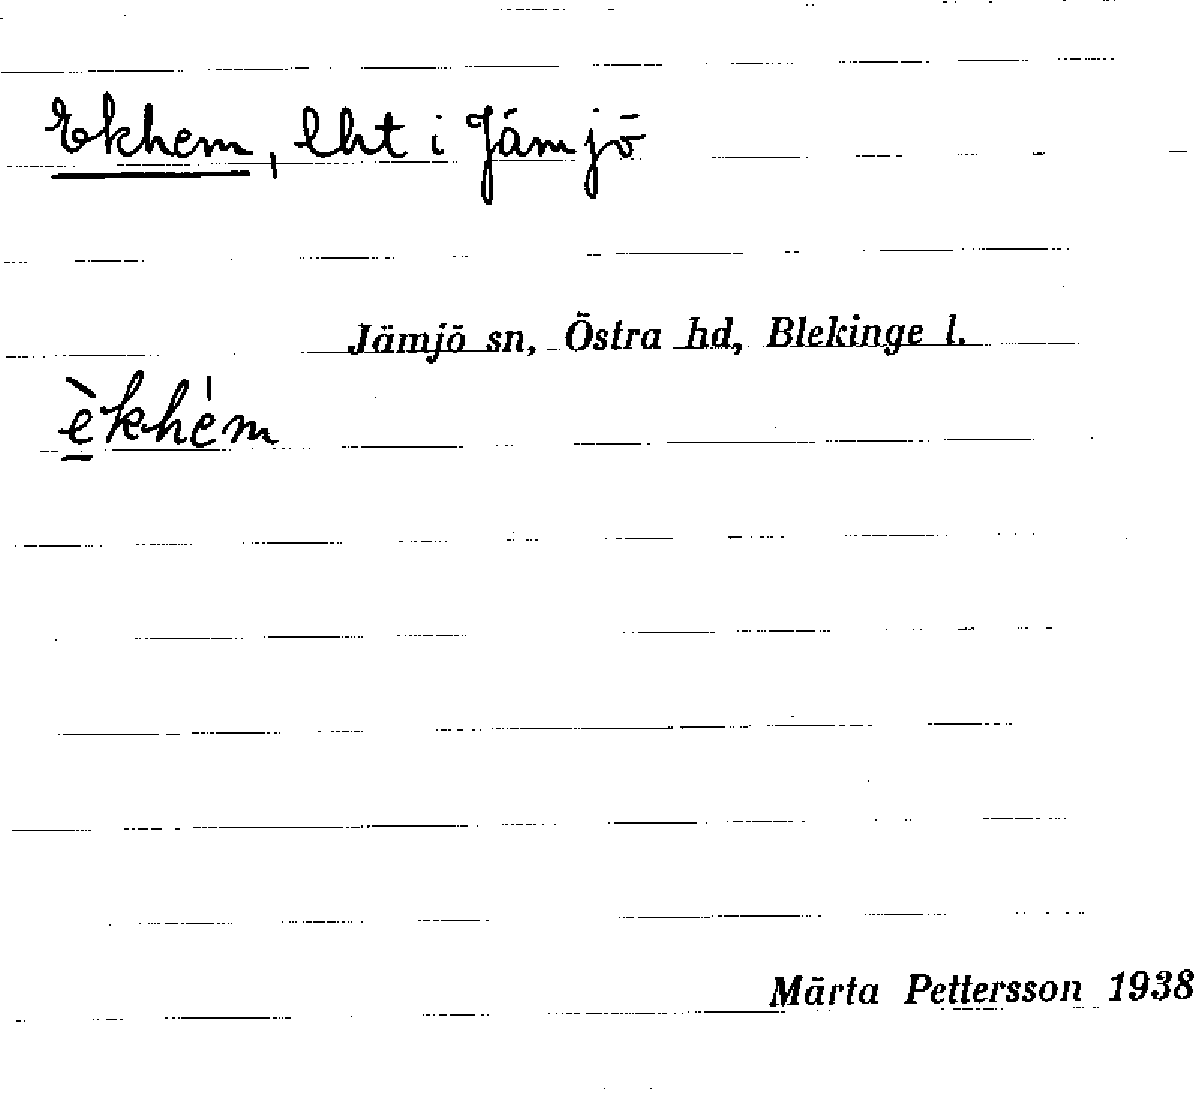 Ekhem, lht i Jämjö
Jämjö sn, Östra hd, Blekinge l.
èkhém
Märta Pettersson 1938